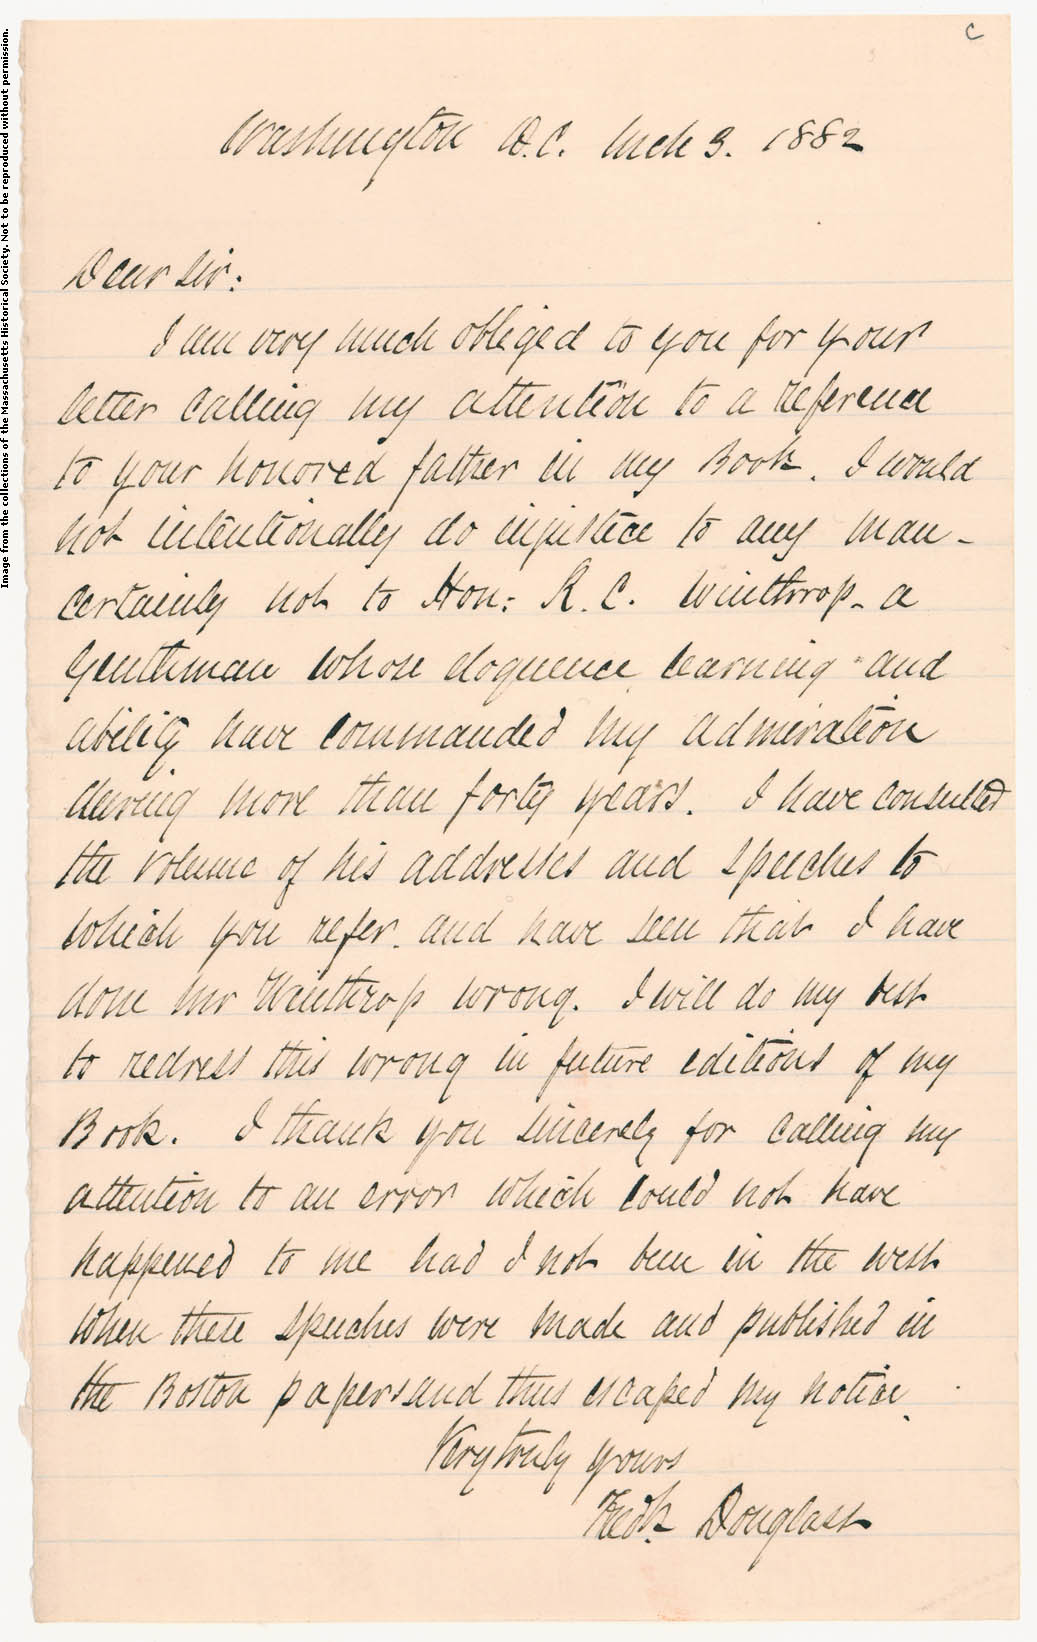 c
Washington D.C. Mch 3. 1882
Dear Sir:
I am very much obliged to you for your
letter calling my attention to a reference
to your honored father in my Book. I would
not intentionally do injustice to any man -
certainly not to Hon: R. C. Winthrop - a
Gentleman whose eloquence learning and
ability have commanded my admiration
during more than forty years. I have consulted
the volume of his addresses and speeches to
which you refer. and have seen that I have
done Mr Winthrop wrong. I will do my best
to redress this wrong in future editions of my
Book. I thank you sincerely for calling my
attention to an error which could not have
happened to me had I not been in the west
when these speeches were made and published in
the Boston papers and thus escaped my notice.
Very truly yours
Fredk Douglass
Image from the collections of the Massachusetts Historical Society. Not to be reproduced without permission.